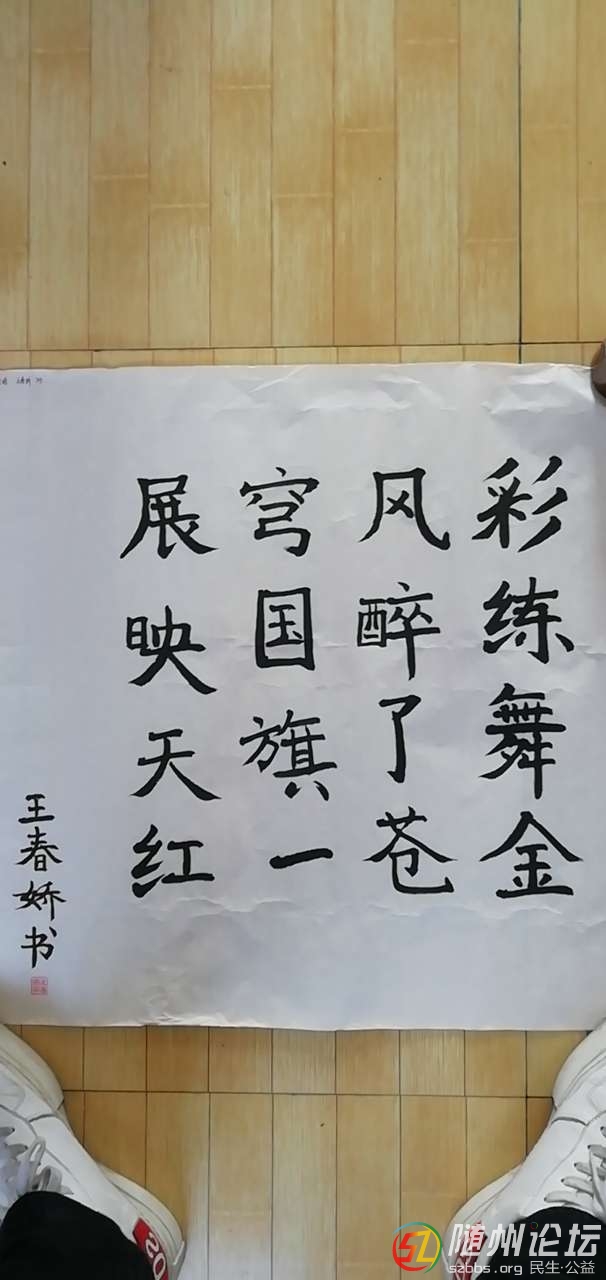 彩练舞金
风醉了苍
穹国旗一
展映天红
王春娇书
随州论坛
szbbs.org 民生·公益